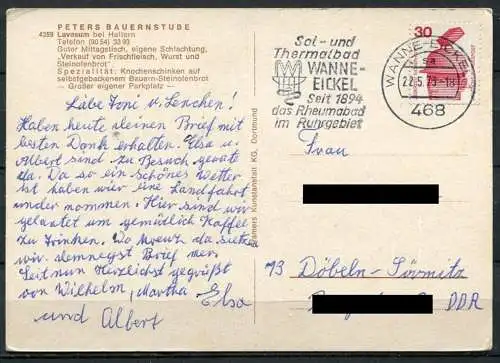 PETERS BAUERNSTUBE
4359 Lavesum bei Haltern
Telefon (90 54) 33 93
Guter Mittagstisch, eigene Schlachtung,
"Verkauf von Frischfleisch, Wurst und
Steinofenbrot"
Spezialität: Knochenschinken auf
selbstgebackenem Bauern-Steinofenbrot
— Großer eigener Parkplatz —
Liebe Toni u. Lenchen!
Haben heute deinen Brief mit
besten Dank erhalten. Elsa u.
Albert sind zu Besuch
da. Da so ein schönes Wetter
ist haben wir eine Landfahrt
unternommen. Hier sind wir
gelandet um gemütlich Kaffee
zu trinken. Wo Kreuz da
wir demnegst Brief
Seit nun Herzlichst gegrüßt
von Wilhelm, Martha Elsa
und Albert
Cramers Kunstanstalt KG, Dortmund
Sol- und
Thermalbad
WANNE-
EICKEL
Seit 1894
das Rheumabad
im Ruhrgebiet
WANNE-EICKEL
468
30
Frau
73 Döbeln-Sörmitz
DDR